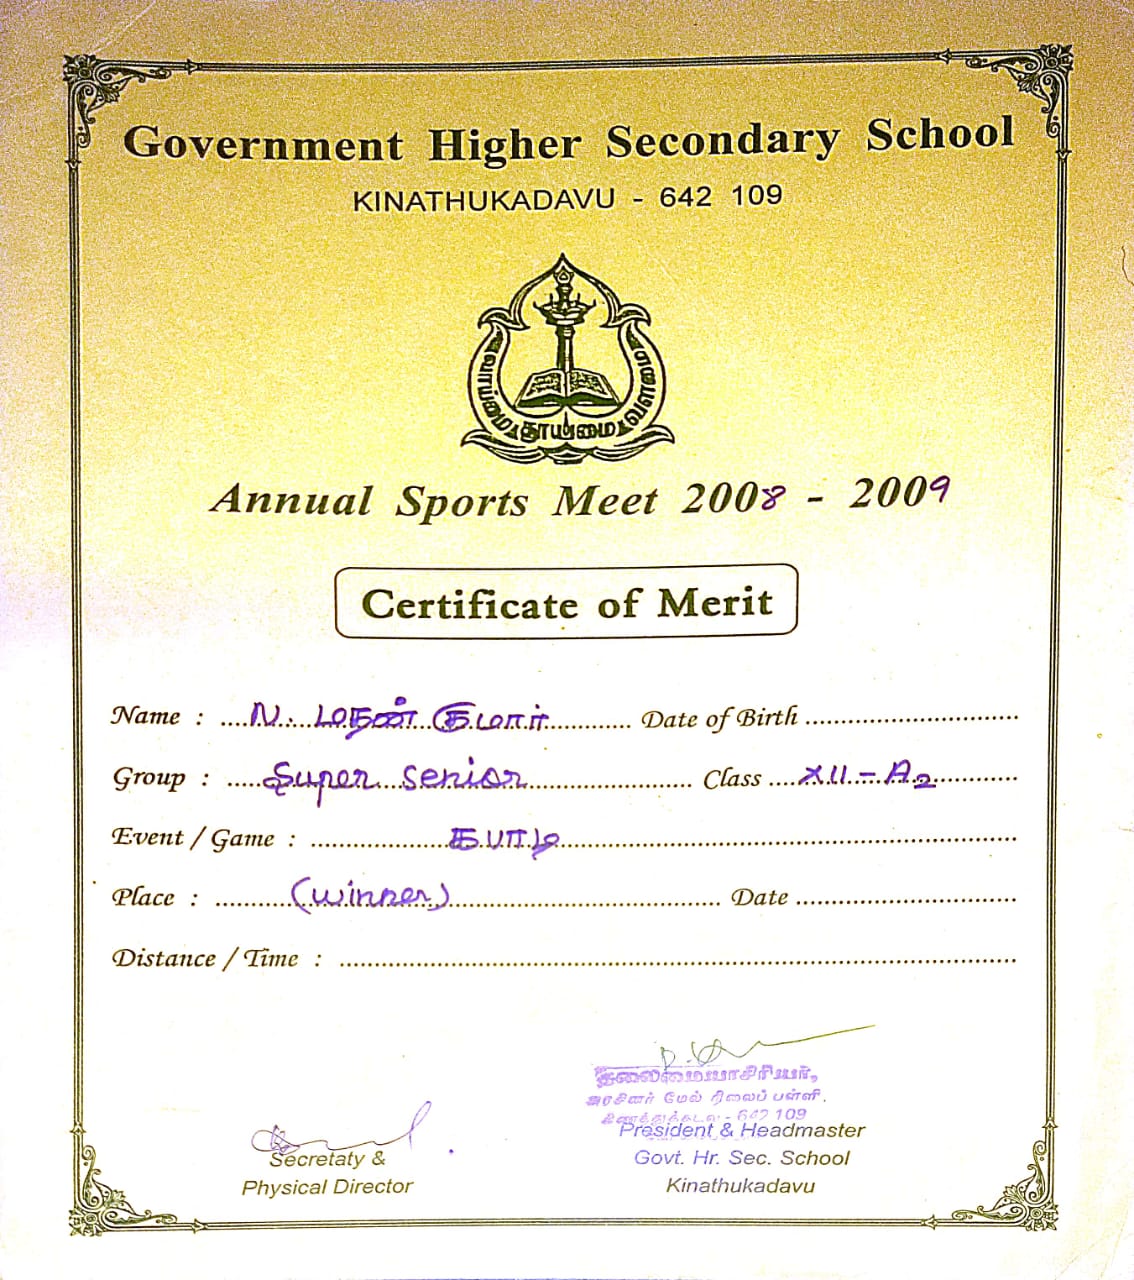 Government Higher Secondary School
KINATHUKADAVU - 642 109
வாய்மை தூய்மை
Annual Sports Meet 2008 - 2009
Certificate of Merit
Name : N. மதன் குமார் Date of Birth
Group : Super Senior Class XII - A2
Event / Game : கபாடி
Place : (Winner) Date
Distance / Time :
தலைமையாசிரியர்,
அரசினர் மேல் நிலைப் பள்ளி,
கிணத்துக்கடவு - 642 109
Secretaty &
Physical Director
President & Headmaster
Govt. Hr. Sec. School
Kinathukadavu